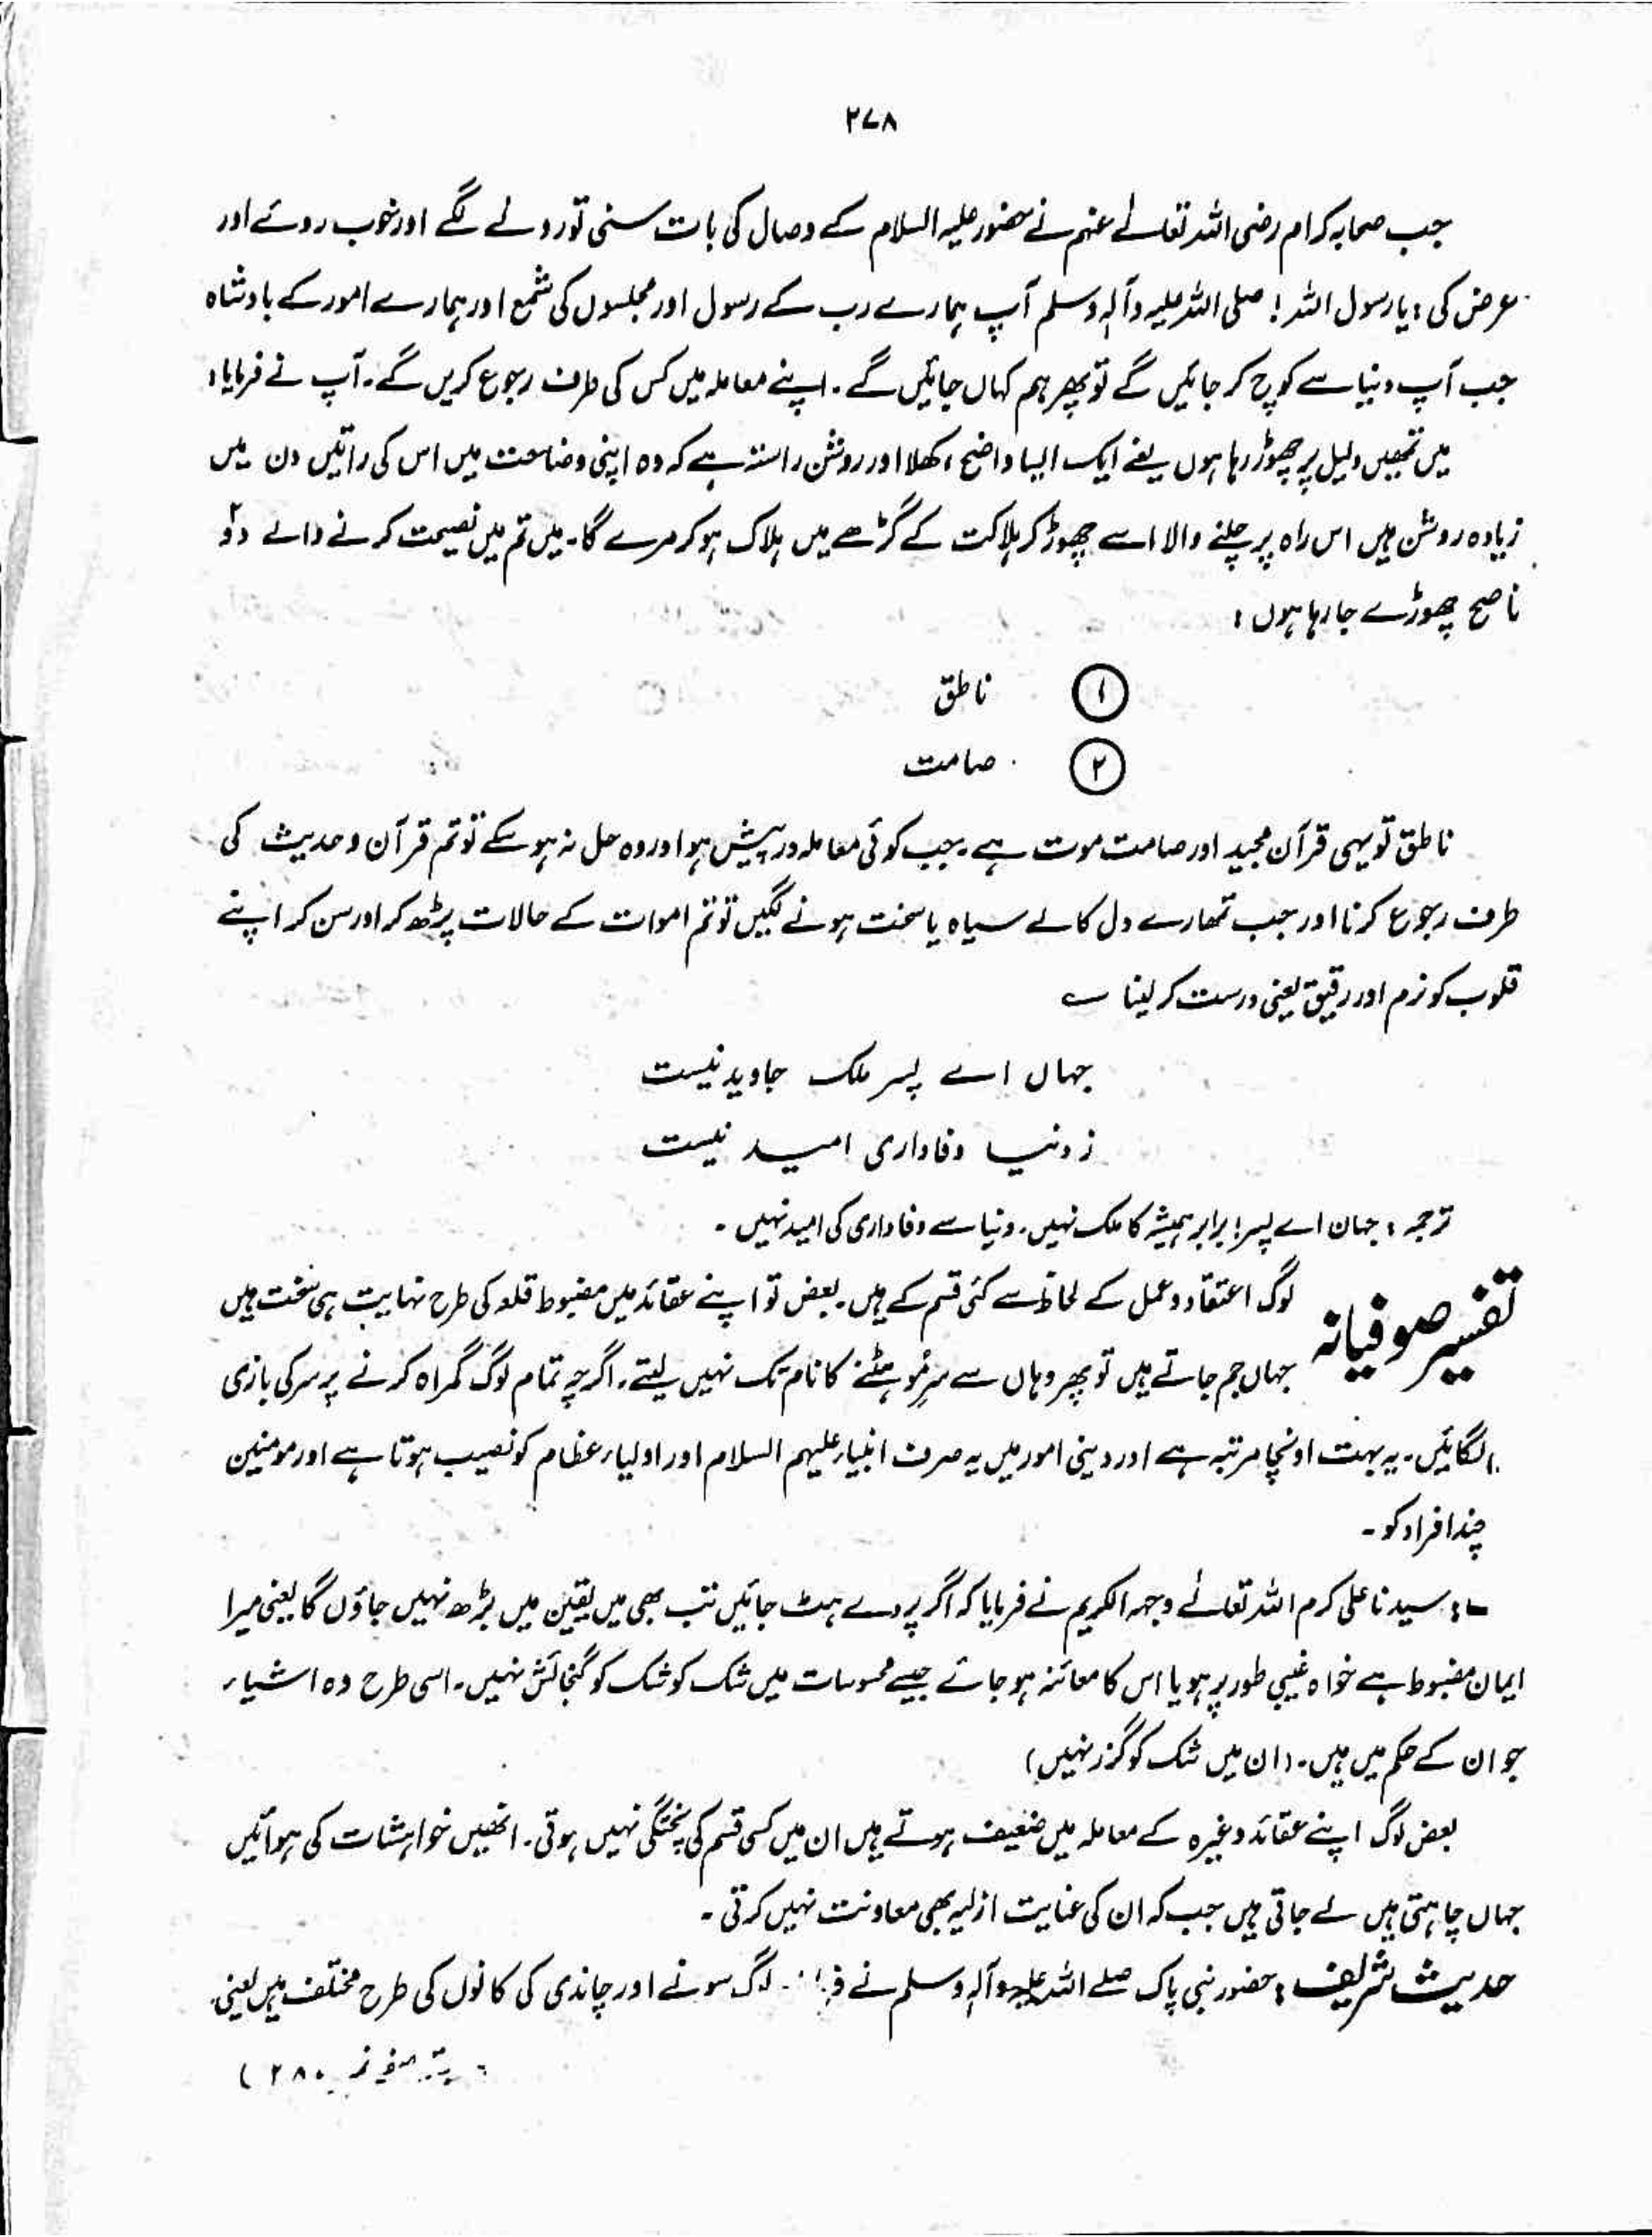 ۲۷۸
جب صحابہ کرام رضی اللہ تعالےٰ عنہم نے حضور علیہ السلام کے وصال کی بات سنی تو رونے لگے اور خوب روئے اور
عرض کی : یا رسول اللہ ! صلی اللہ علیہ وآلہٖ وسلم آپ ہمارے رب کے رسول اور مجلسوں کی شمع اور ہمارے امور کے بادشاہ
جب آپ دنیا سے کوچ کر جائیں گے تو پھر ہم کہاں جائیں گے ۔ اپنے معاملہ میں کس کی طرف رجوع کریں گے ۔ آپ نے فرمایا :
میں تمھیں دلیل پر چھوڑ رہا ہوں یعنے ایک ایسا واضح ، کھلا اور روشن راستہ ہے کہ وہ اپنی وضاحت میں اس کی راتیں دن میں
زیادہ روشن ہیں اس راہ پر چلنے والا اسے چھوڑ کر ہلاکت کے گڑھے میں ہلاک ہو کر مرے گا ۔ میں تم میں نصیحت کرنے والے دو
ناصح چھوڑے جا رہا ہوں :
① ناطق
② صامت
ناطق تو یہی قرآن مجید اور صامت موت ہے ۔ جب کوئی معاملہ درپیش ہو اور وہ حل نہ ہو سکے تو تم قرآن و حدیث کی
طرف رجوع کرنا اور جب تمھارے دل کالے سیاہ یا سخت ہونے لگیں تو تم اموات کے حالات پڑھ کر اور سن کر اپنے
قلوب کو نرم اور رقیق یعنی درست کر لینا ؎
جہاں اے پسر ملک جاوید نیست
ز دنیا وفاداری امید نیست
ترجمہ : جہان اے پسر ! برابر ہمیشہ کا ملک نہیں ۔ دنیا سے وفاداری کی امید نہیں ۔
تفسیر صوفیانہ لوگ اعتقاد و عمل کے لحاظ سے کئی قسم کے ہیں ۔ بعض تو اپنے عقائد میں مضبوط قلعہ کی طرح نہایت ہی سخت ہیں
جہاں جم جاتے ہیں تو پھر وہاں سے سرِمُو ہٹنے کا نام تک نہیں لیتے ۔ اگرچہ تمام لوگ گمراہ کرنے پر سر کی بازی
لگائیں ۔ یہ بہت اونچا مرتبہ ہے اور دینی امور میں یہ صرف انبیاء علیہم السلام اور اولیاء عظام کو نصیب ہوتا ہے اور مومنین
چند افراد کو ۔
سیدنا علی کرم اللہ تعالےٰ وجہہ الکریم نے فرمایا کہ اگر پردے ہٹ جائیں تب بھی میں یقین میں بڑھ نہیں جاؤں گا یعنی میرا
ایمان مضبوط ہے خواہ غیبی طور پر ہو یا اس کا معائنہ ہو جائے جیسے محسوسات میں شک کو شک کو گنجائش نہیں ۔ اسی طرح وہ اشیاء
جو ان کے حکم میں ہیں ۔ (ان میں شک کو گزر نہیں)
بعض لوگ اپنے عقائد وغیرہ کے معاملہ میں ضعیف ہوتے ہیں ان میں کسی قسم کی پختگی نہیں ہوتی ۔ انھیں خواہشات کی ہوائیں
جہاں چاہتی ہیں لے جاتی ہیں جب کہ ان کی عنایت ازلیہ بھی معاونت نہیں کرتی ۔
حدیث شریف : حضور نبی پاک صلے اللہ علیہ وآلہٖ وسلم نے لوگ سونے اور چاندی کی کانوں کی طرح مختلف ہیں یعنی
صفحہ ۲۸۰ )